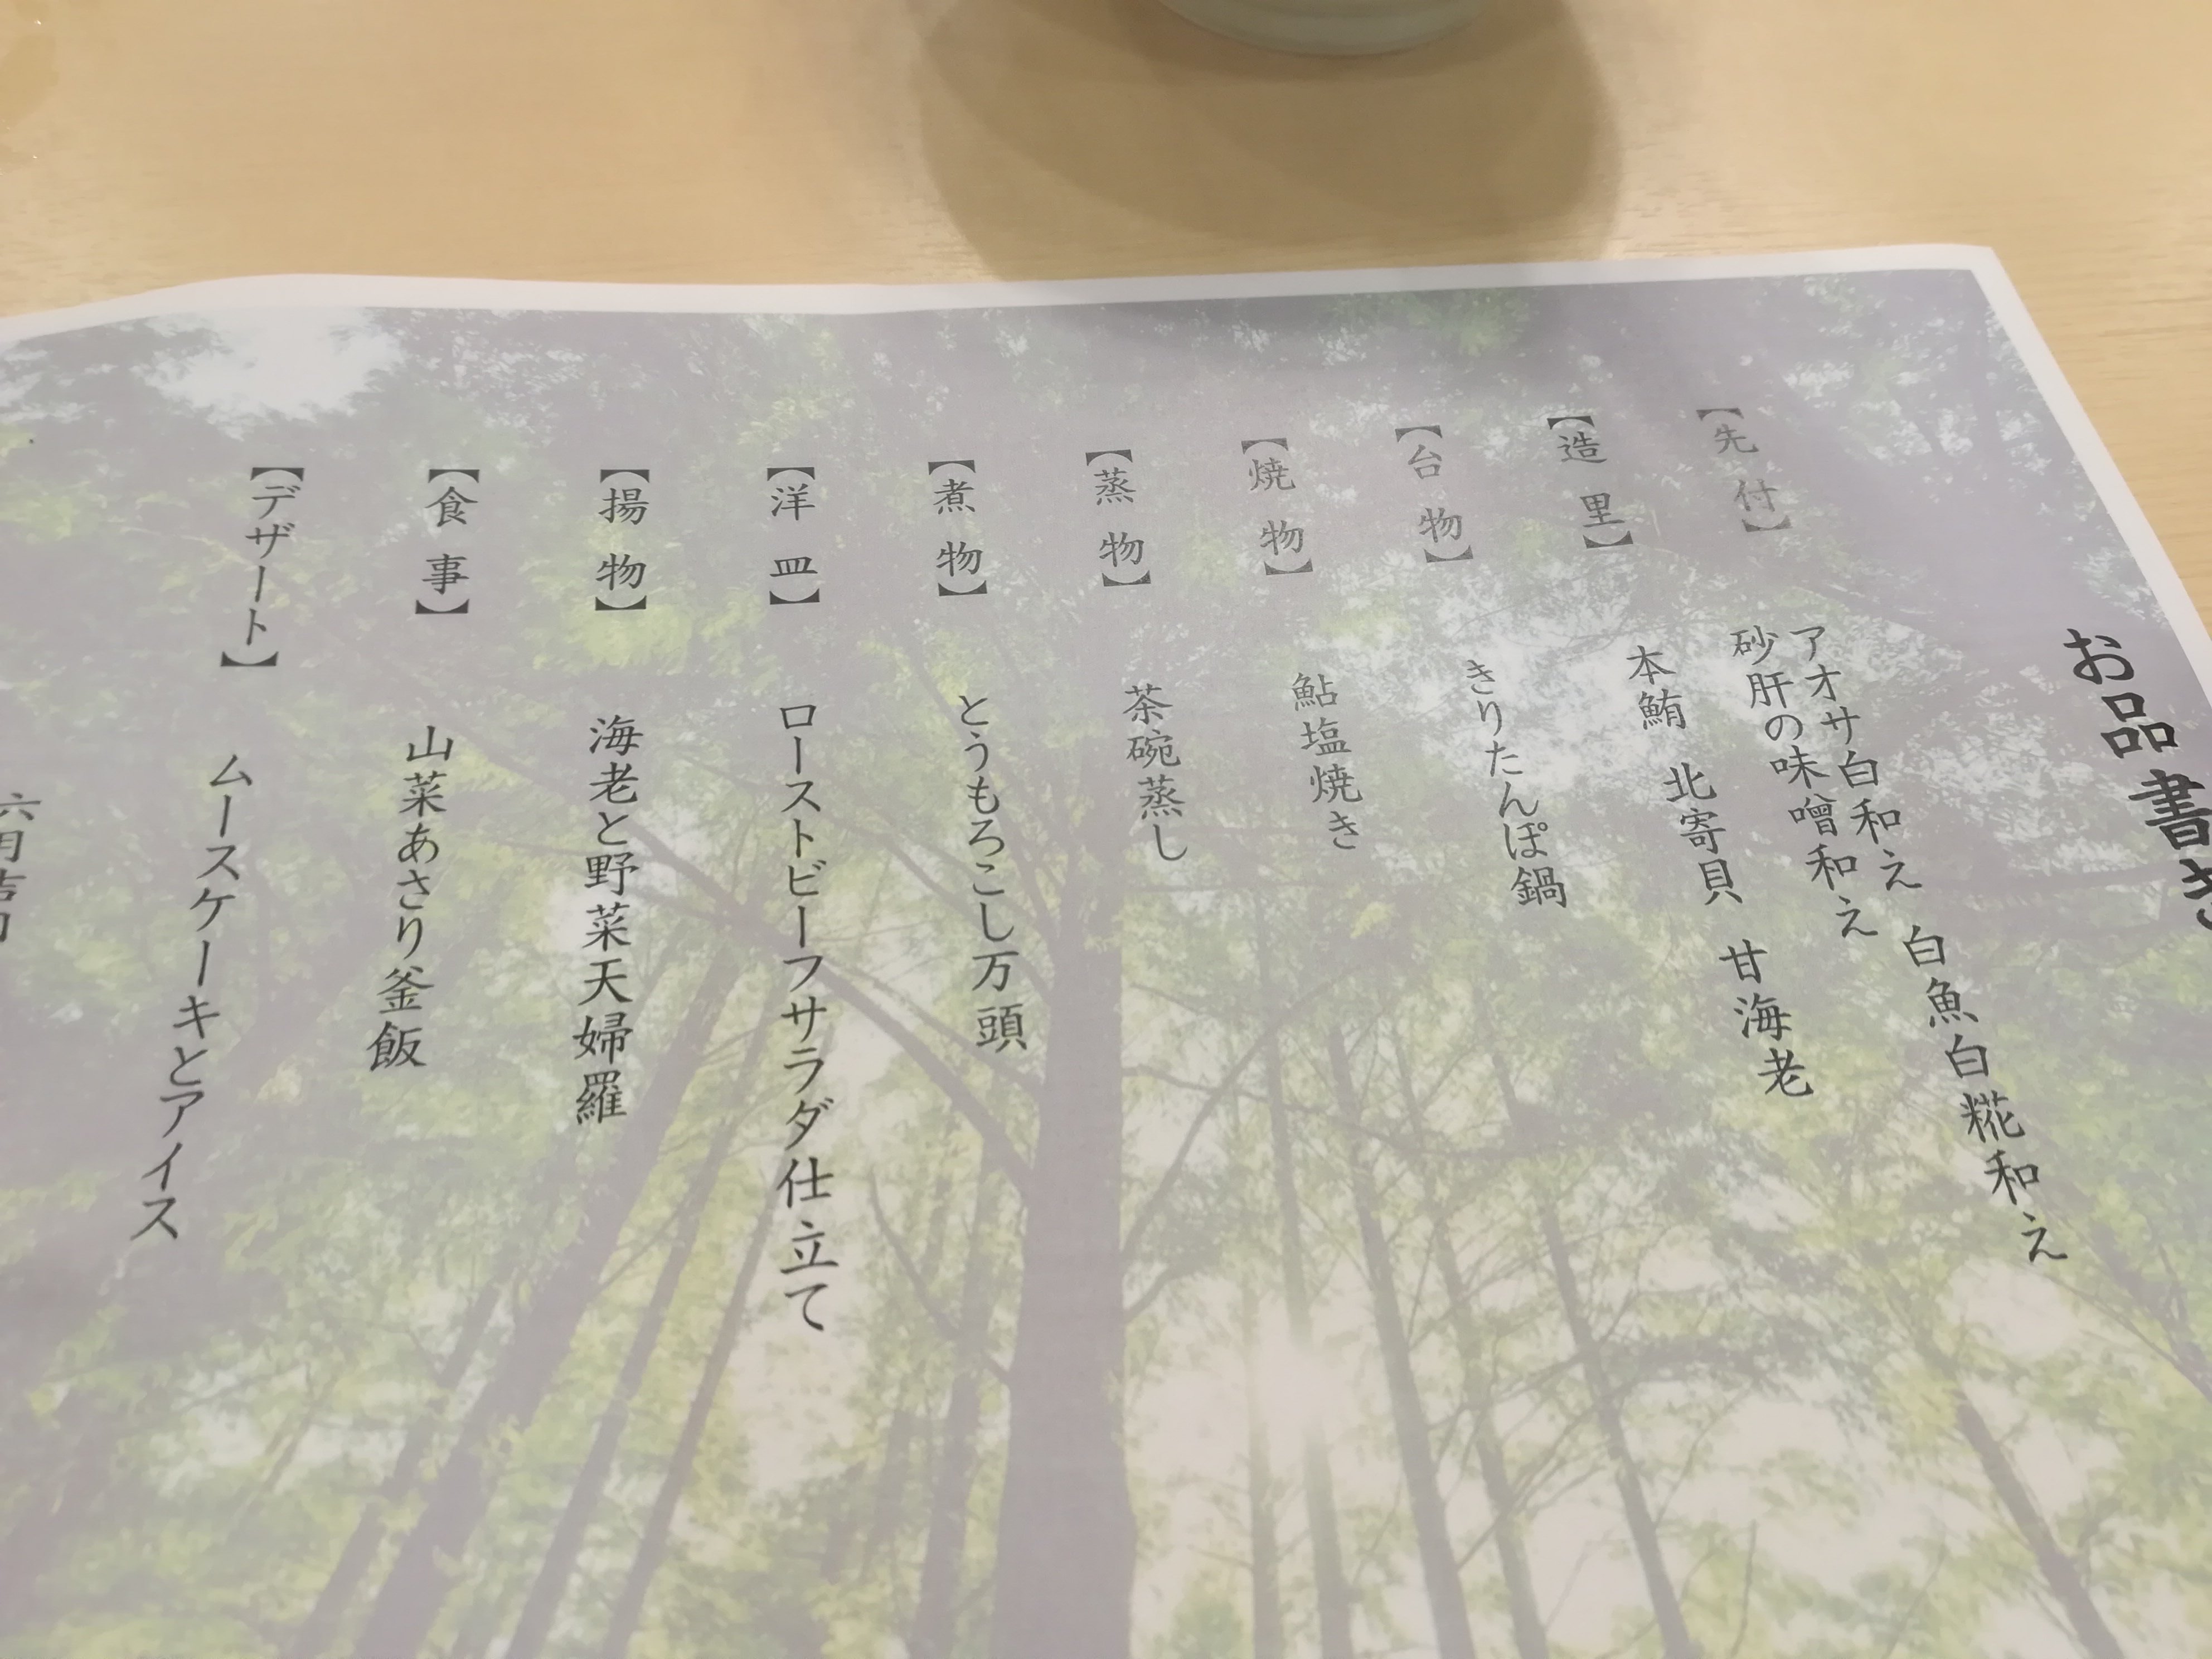 お品書き
【先付】 アオサ白和え 白魚白糀和え
砂肝の味噌和え
【造里】 本鮪 北寄貝 甘海老
【台物】 きりたんぽ鍋
【焼物】 鮎塩焼き
【蒸物】 茶碗蒸し
【煮物】 とうもろこし万頭
【洋皿】 ローストビーフサラダ仕立て
【揚物】 海老と野菜天婦羅
【食事】 山菜あさり釜飯
【デザート】 ムースケーキとアイス
六月吉日